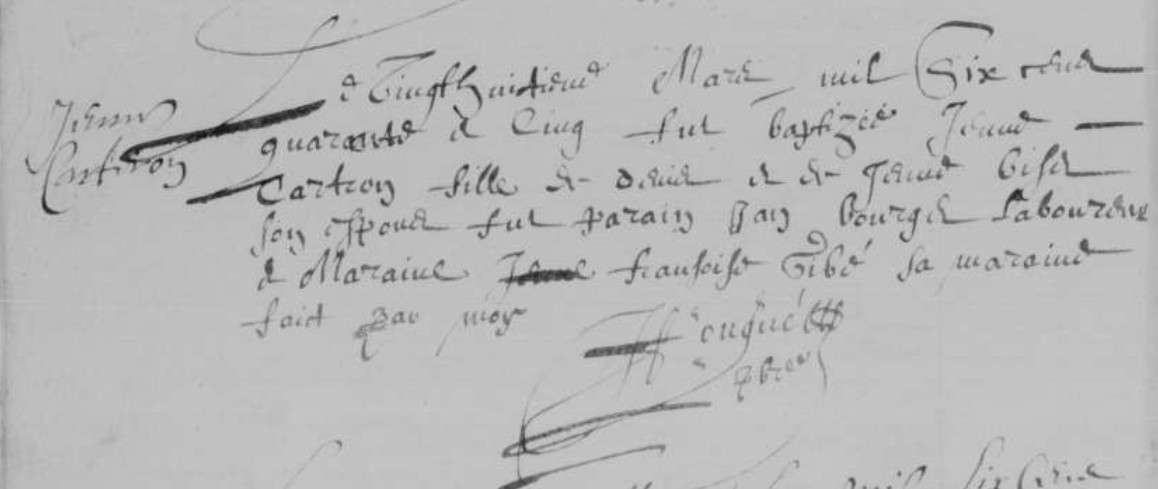 Jenne
Cartron
Le Vingthuitieme Mars mil Six cens
quarante & Cinq fut baptizée Jenne
Cartron fille de denis & de Jenne
son espouse fut parain Jan bourge Laboureur
& Maraine fransoise Gibé sa maraine
faict par moy
pbre
mil Six Cens